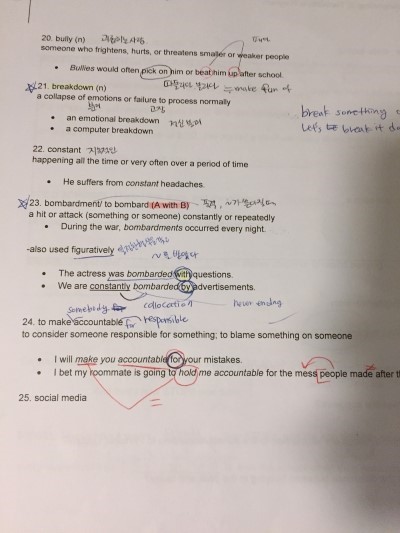 20. bully (n) 괴롭히는 사람
someone who frightens, hurts, or threatens smaller or weaker people
• Bullies would often pick on him or beat him up after school.
따돌리다 놀리다 = make fun of
21. breakdown (n)
a collapse of emotions or failure to process normally
• an emotional breakdown
• a computer breakdown 고장
break something
Let's break it d
22. constant
happening all the time or very often over a period of time
• He suffers from constant headaches.
23. bombardment/ to bombard (A with B)
a hit or attack (something or someone) constantly or repeatedly
• During the war, bombardments occurred every night.
-also used figuratively
• The actress was bombarded with questions.
• We are constantly bombarded by advertisements.
somebody collocation never ending
24. to make accountable for responsible
to consider someone responsible for something; to blame something on someone
• I will make you accountable for your mistakes.
• I bet my roommate is going to hold me accountable for the mess people made after th
=
25. social media